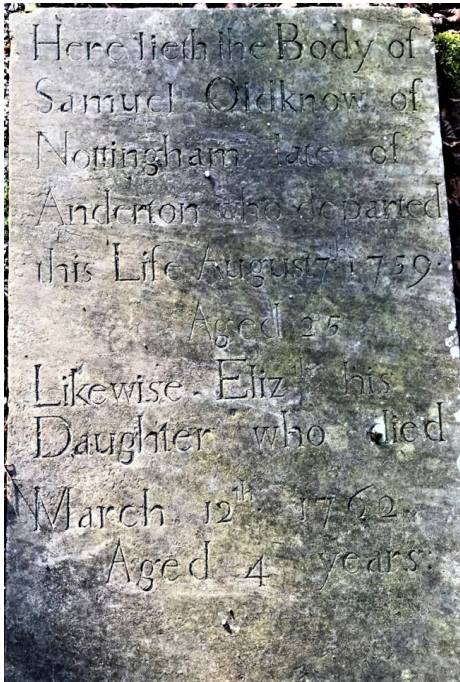 Here lieth the Body of
Samuel Oldknow of
Nottingham late of
Anderton who departed
this Life August 7th 1759.
Aged 25
Likewise Elizth his
Daughter who died
March 12th 1762.
Aged 4 years: